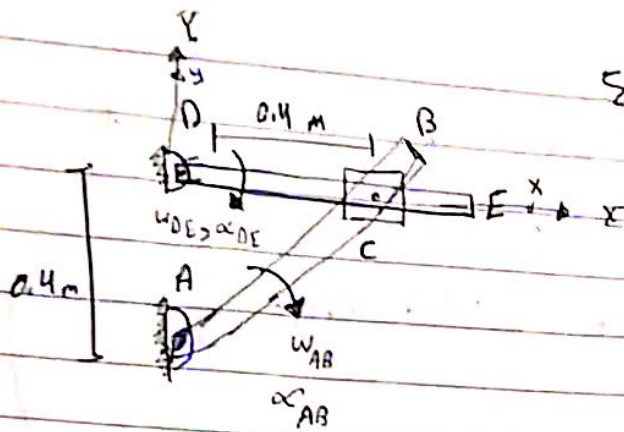 Y
y
D
0.4 m
B
E
x
X
C
ω_DE, α_DE
A
0.4 m
ω_AB
α_AB